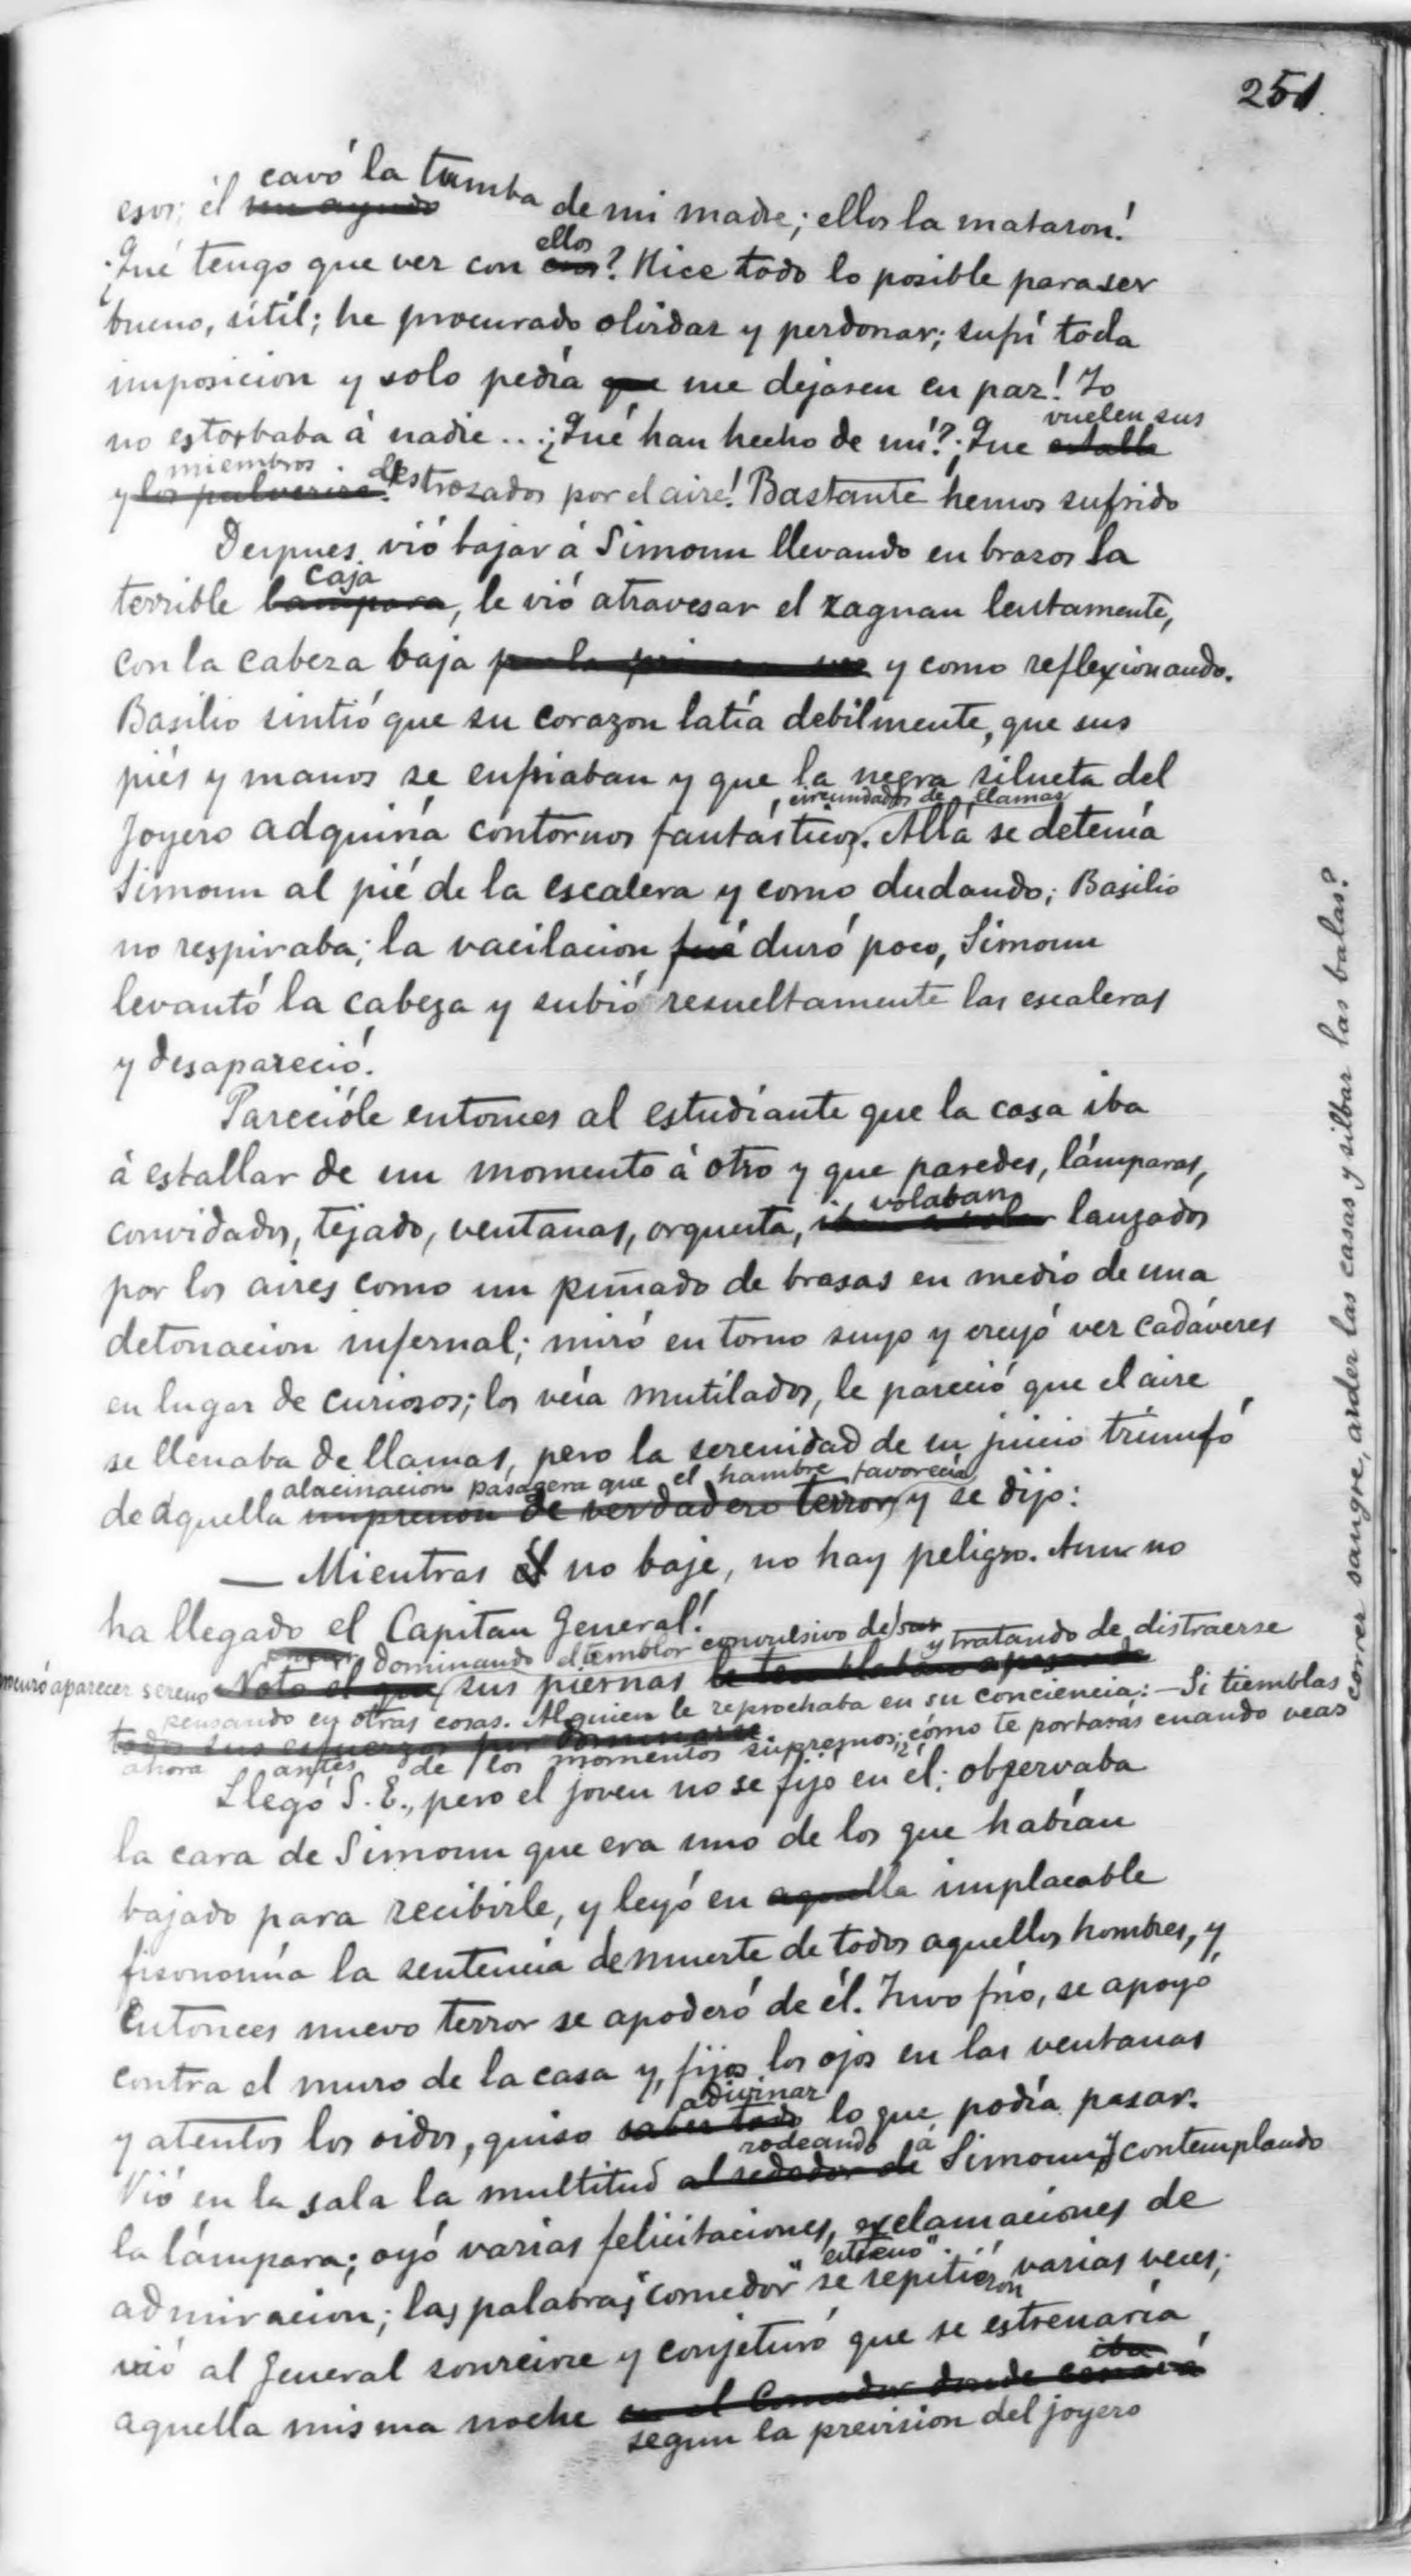 251.
cavó la tumba
esos; él de mi madre; ellos la mataron!
ellos
¿Qué tengo que ver con ? Hice todo lo posible para ser
bueno, útil; he procurado olvidar y perdonar; sufrí toda
imposicion y solo pedía que me dejasen en paz! Yo
vuelen sus
no estorbaba á nadie... ¿Qué han hecho de mí? ¡Que estalle
miembros
y los pulverice! destrozados por el aire! Bastante hemos sufrido
Despues vió bajar á Simoun llevando en brazos la
caja
terrible lampara, le vió atravesar el zaguan lentamente,
con la cabeza baja por la primera vez y como reflexionando.
Basilio sintió que su corazon latía debilmente, que sus
piés y manos se enfriaban y que la negra silueta del
, circundados de llamas
joyero adquiría contornos fantásticos. Allá se detenía
Simoun al pié de la escalera y como dudando; Basilio
no respiraba; la vacilacion fué duró poco, Simoun
levantó la cabeza y subió resueltamente las escaleras
y desapareció.
Parecióle entonces al estudiante que la casa iba
á estallar de un momento á otro y que paredes, lámparas,
volaban
convidados, tejado, ventanas, orquesta, iban a volar lanzados
por los aires como un puñado de brasas en medio de una
detonacion infernal; miró en torno suyo y creyó ver cadáveres
en lugar de curiosos; los veía mutilados, le pareció que el aire
se llenaba de llamas, pero la serenidad de su juicio triunfó
alucinacion pasagera que el hambre favorecía
de aquella impresion de verdadero terror, y se dijo:
— Mientras él no baje, no hay peligro. Aun no
ha llegado el Capitan General!
dominando el temblor convulsivo de sus y tratando de distraerse
procuró aparecer sereno Notó el que sus piernas le temblaban apesar de
pensando en otras cosas. Alguien le reprochaba en su conciencia: — Si tiemblas
todos sus esfuerzos por dominarse
ahora antes de los momentos supremos, ¿cómo te portarás cuando veas
correr sangre, arder las casas y silbar las balas?
Llegó S. E., pero el joven no se fijó en él: observaba
la cara de Simoun que era uno de los que habían
bajado para recibirle, y leyó en aquella implacable
fisonomía la sentencia de muerte de todos aquellos hombres, y
entonces nuevo terror se apoderó de él. Tuvo frío, se apoyó
contra el muro de la casa y, fijos los ojos en las ventanas
adivinar
y atentos los oidos, quiso saber todo lo que podía pasar.
rodeando á
Vió en la sala la multitud al rededor de Simoun y contemplando
la lámpara; oyó varias felicitaciones, exclamaciones de
"estreno"
admiracion; las palabras "comedor" se repitieron varias veces;
vió al General sonreirse y conjeturó que se estrenaría
iba
aquella misma noche en el comedor donde cenará
segun la prevision del joyero